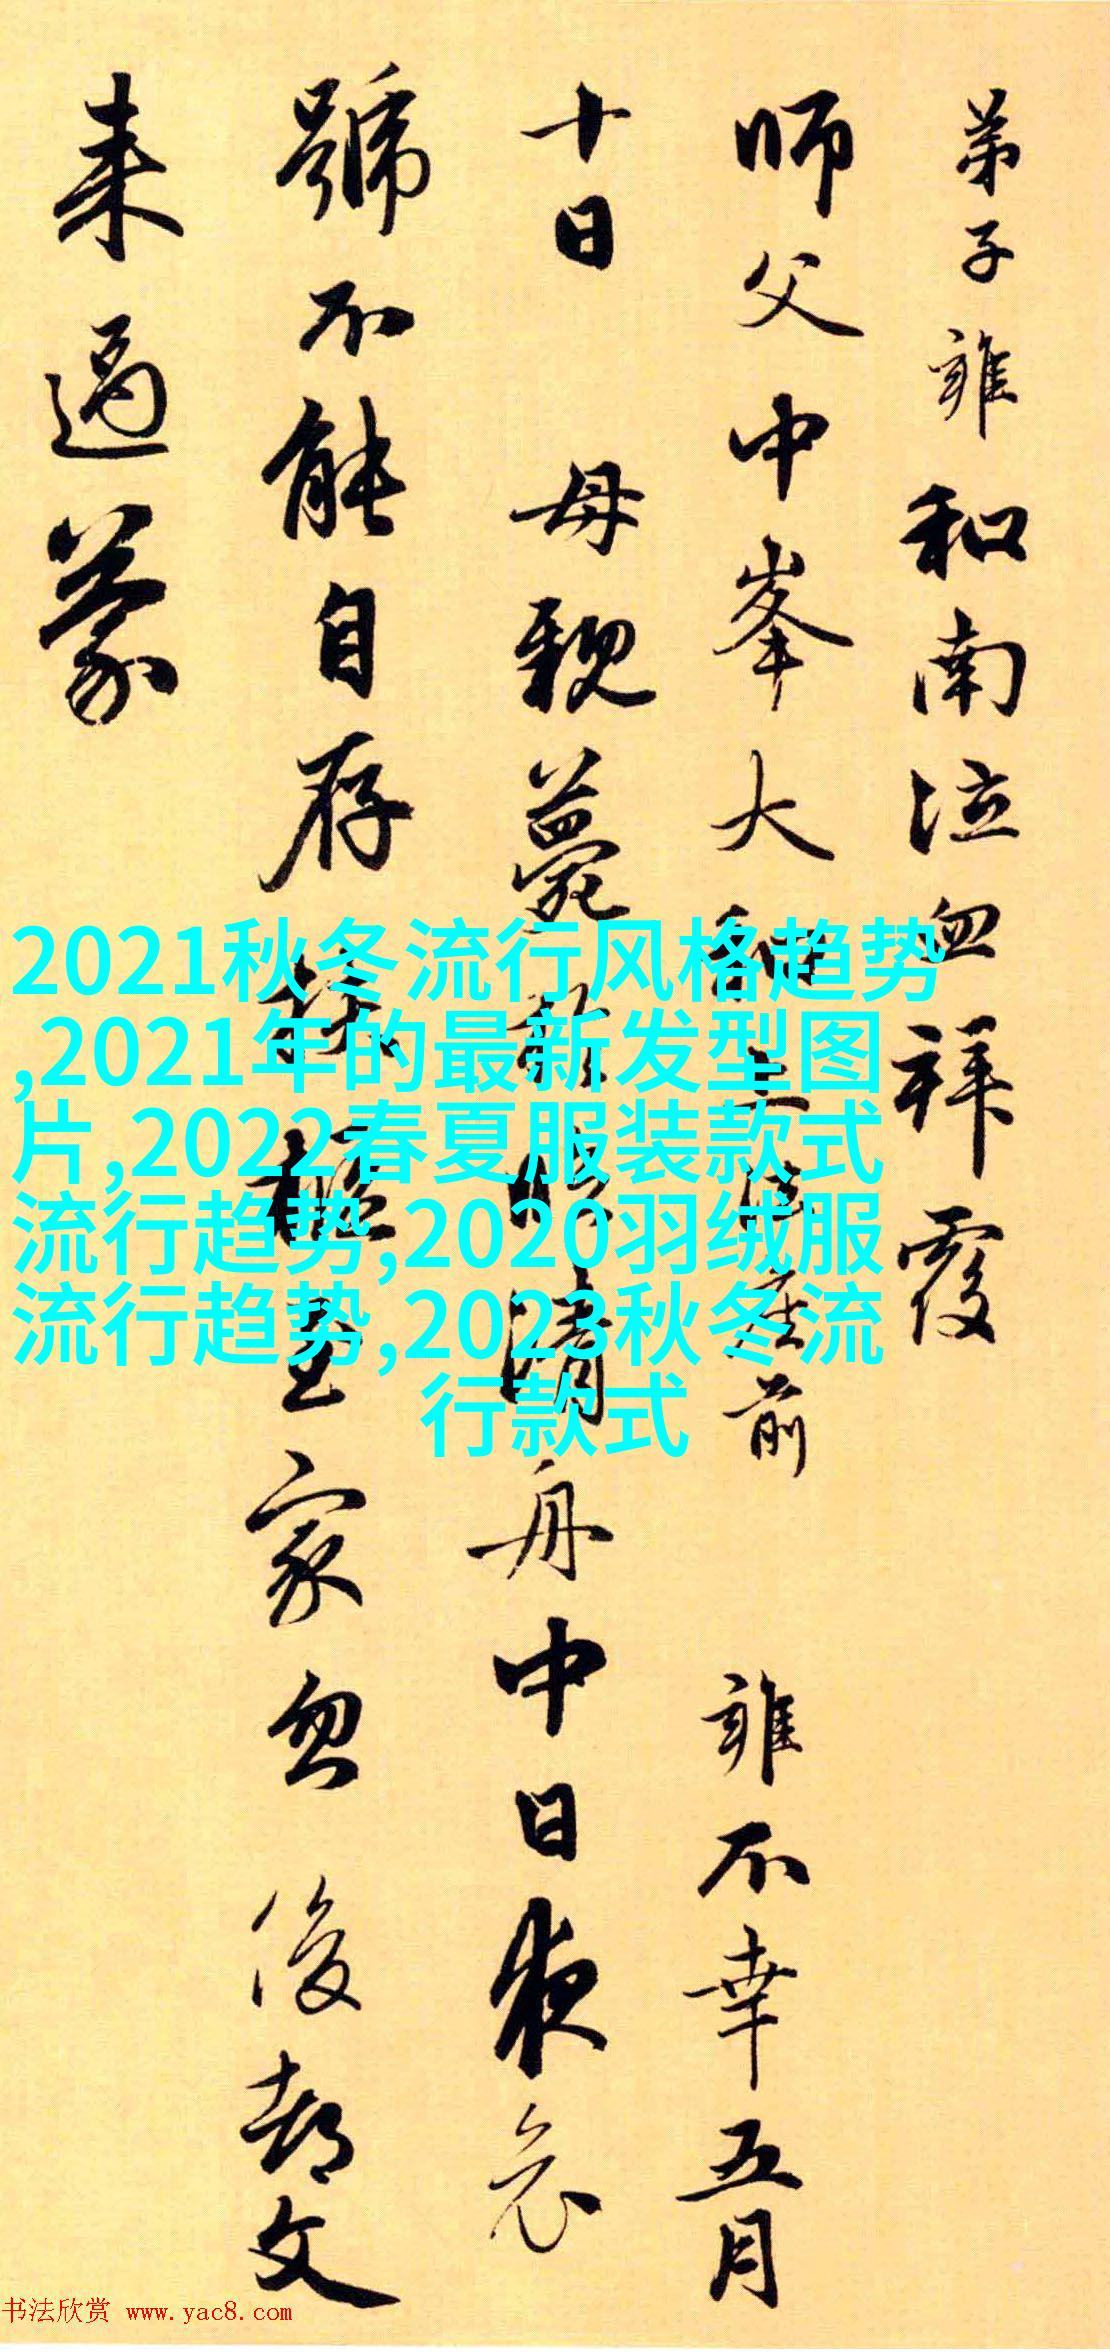 弟子雍和南泣血拜覆
師父中峯大和上法座前 雍不幸五月
十日 母親薨
清舟中日夜哀
號不能自存扶柩至家忽 後都文
來過蒙
2021秋冬流行风格趋势
,2021年的最新发型图
片,2022春夏服装款式
流行趋势,2020羽绒服
流行趋势,2023秋冬流
行款式
书法欣赏 www.yac8.com